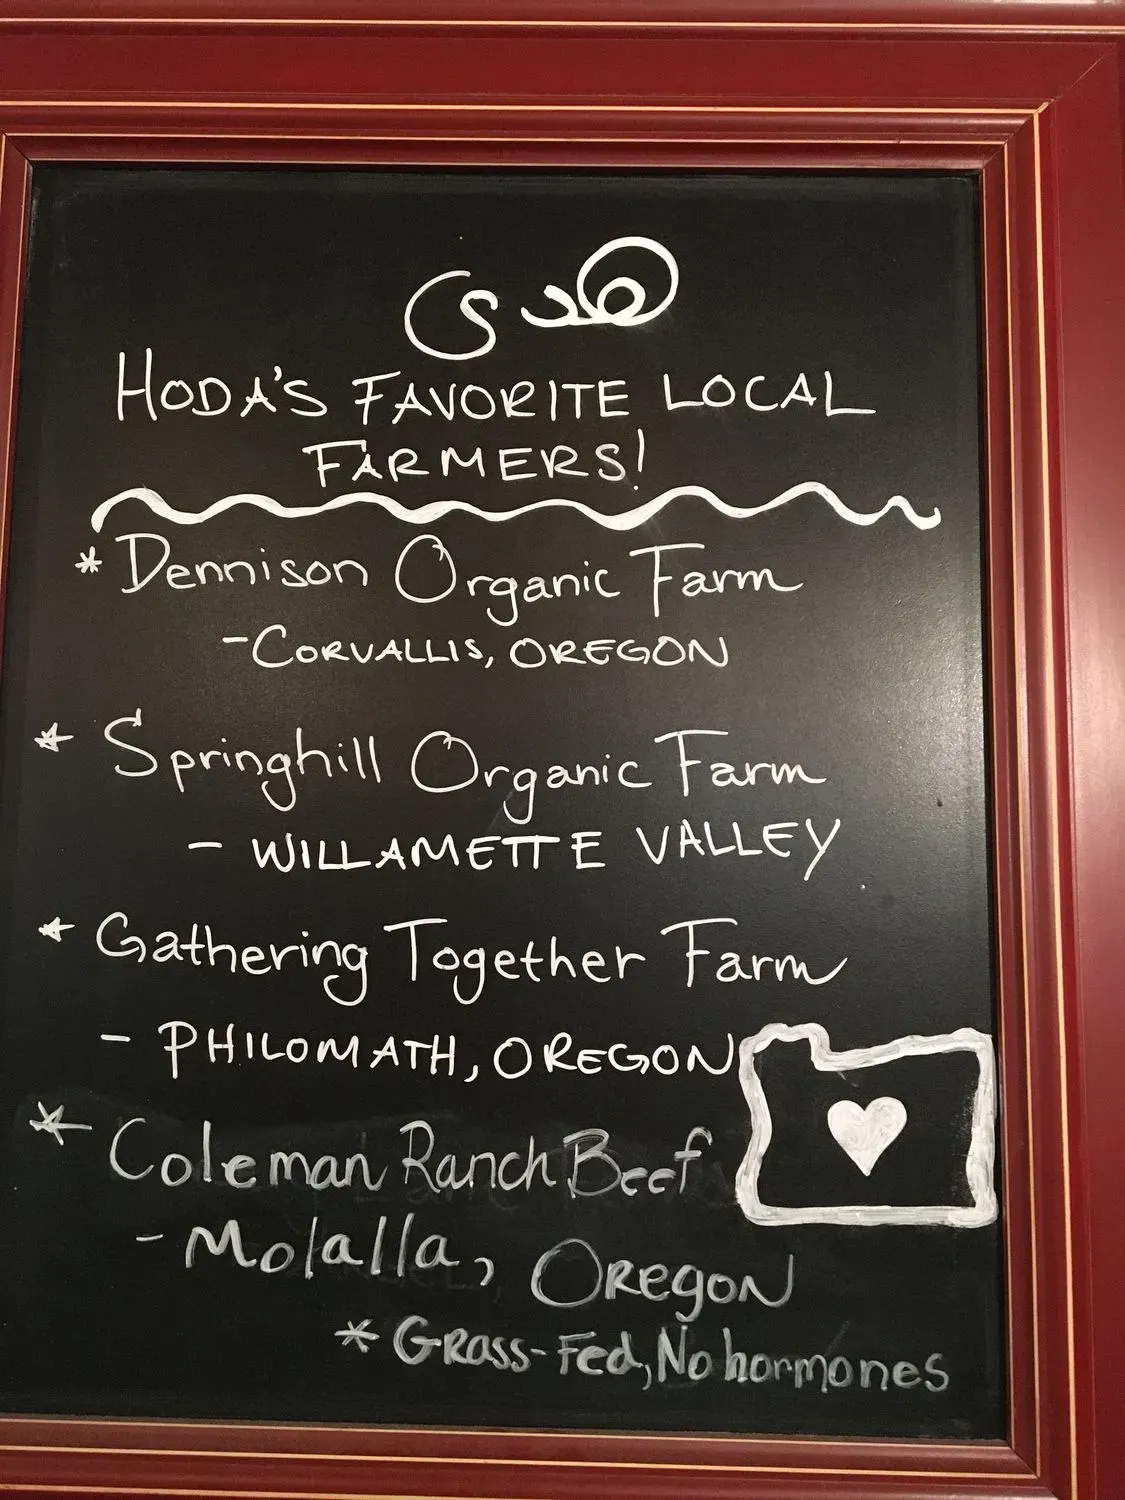 هدى
HODA'S FAVORITE LOCAL
FARMERS!
* Dennison Organic Farm
- CORVALLIS, OREGON
* Springhill Organic Farm
- WILLAMETTE VALLEY
* Gathering Together Farm
- PHILOMATH, OREGON
* Coleman Ranch Beef
- Molalla, OREGON
* GRASS-Fed, No hormones